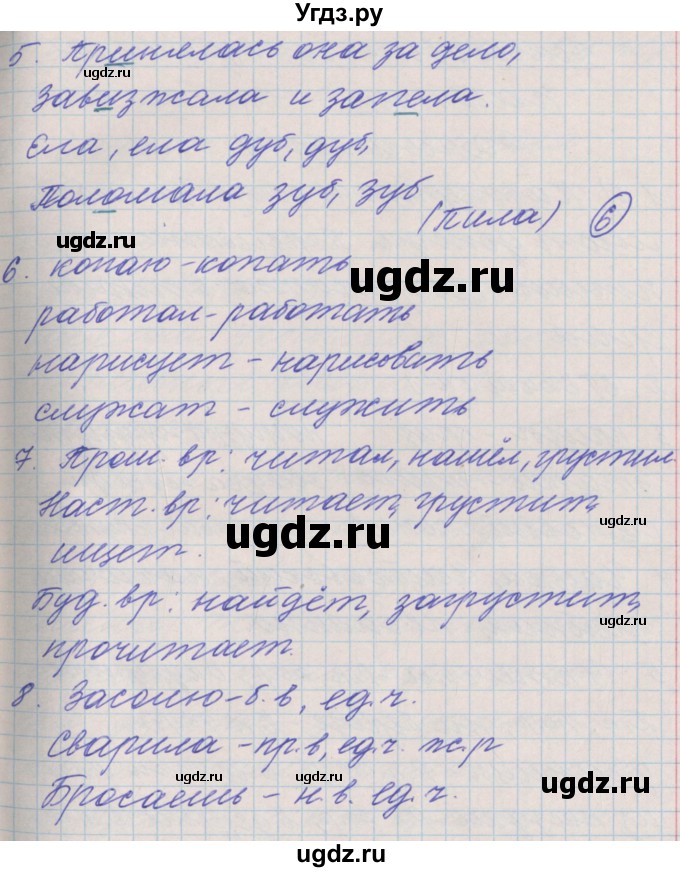 Угдз.ру
5. Принялась она за дело,
ugdz.ru
Завизжала и запела.
ugdz.ru
Ела, ела дуб, дуб,
Поломала зуб, зуб
(Пила) 6
ugdz.ru
6. копаю - копать
ugdz.ru
работал - работать
нарисует - нарисовать
служат - служить
7. Прош. вр: читал, нашёл, грустил.
Наст. вр: читает, грустит,
ugdz.ru
ugdz.ru
ищет.
Буд. вр: найдёт, загрустит,
ugdz.ru
прочитает.
8. Засолю - б. в, ед. ч.
Сварила - пр. в, ед. ч. ж. р
ugdz.ru
ugdz.ru
Бросаешь - н. в. ед. ч.
ugdz.ru